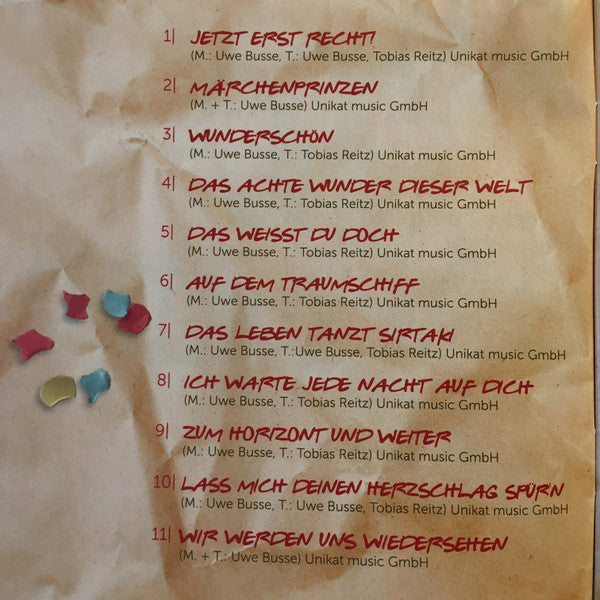 1| JETZT ERST RECHT!
(M.: Uwe Busse, T.: Uwe Busse, Tobias Reitz) Unikat music GmbH
2| MÄRCHENPRINZEN
(M. + T.: Uwe Busse) Unikat music GmbH
3| WUNDERSCHÖN
(M.: Uwe Busse, T.: Tobias Reitz) Unikat music GmbH
4| DAS ACHTE WUNDER DIESER WELT
(M.: Uwe Busse, T.: Tobias Reitz) Unikat music GmbH
5| DAS WEISST DU DOCH
(M.: Uwe Busse, T.: Tobias Reitz) Unikat music GmbH
6| AUF DEM TRAUMSCHIFF
(M.: Uwe Busse, T.: Tobias Reitz) Unikat music GmbH
7| DAS LEBEN TANZT SIRTAKI
(M.: Uwe Busse, T.:Uwe Busse, Tobias Reitz) Unikat music GmbH
8| ICH WARTE JEDE NACHT AUF DICH
(M.: Uwe Busse, T.: Tobias Reitz) Unikat music GmbH
9| ZUM HORIZONT UND WEITER
(M.: Uwe Busse, T.: Tobias Reitz) Unikat music GmbH
10| LASS MICH DEINEN HERZSCHLAG SPÜRN
(M.: Uwe Busse, T.: Uwe Busse, Tobias Reitz) Unikat music GmbH
11| WIR WERDEN UNS WIEDERSEHEN
(M. + T.: Uwe Busse) Unikat music GmbH